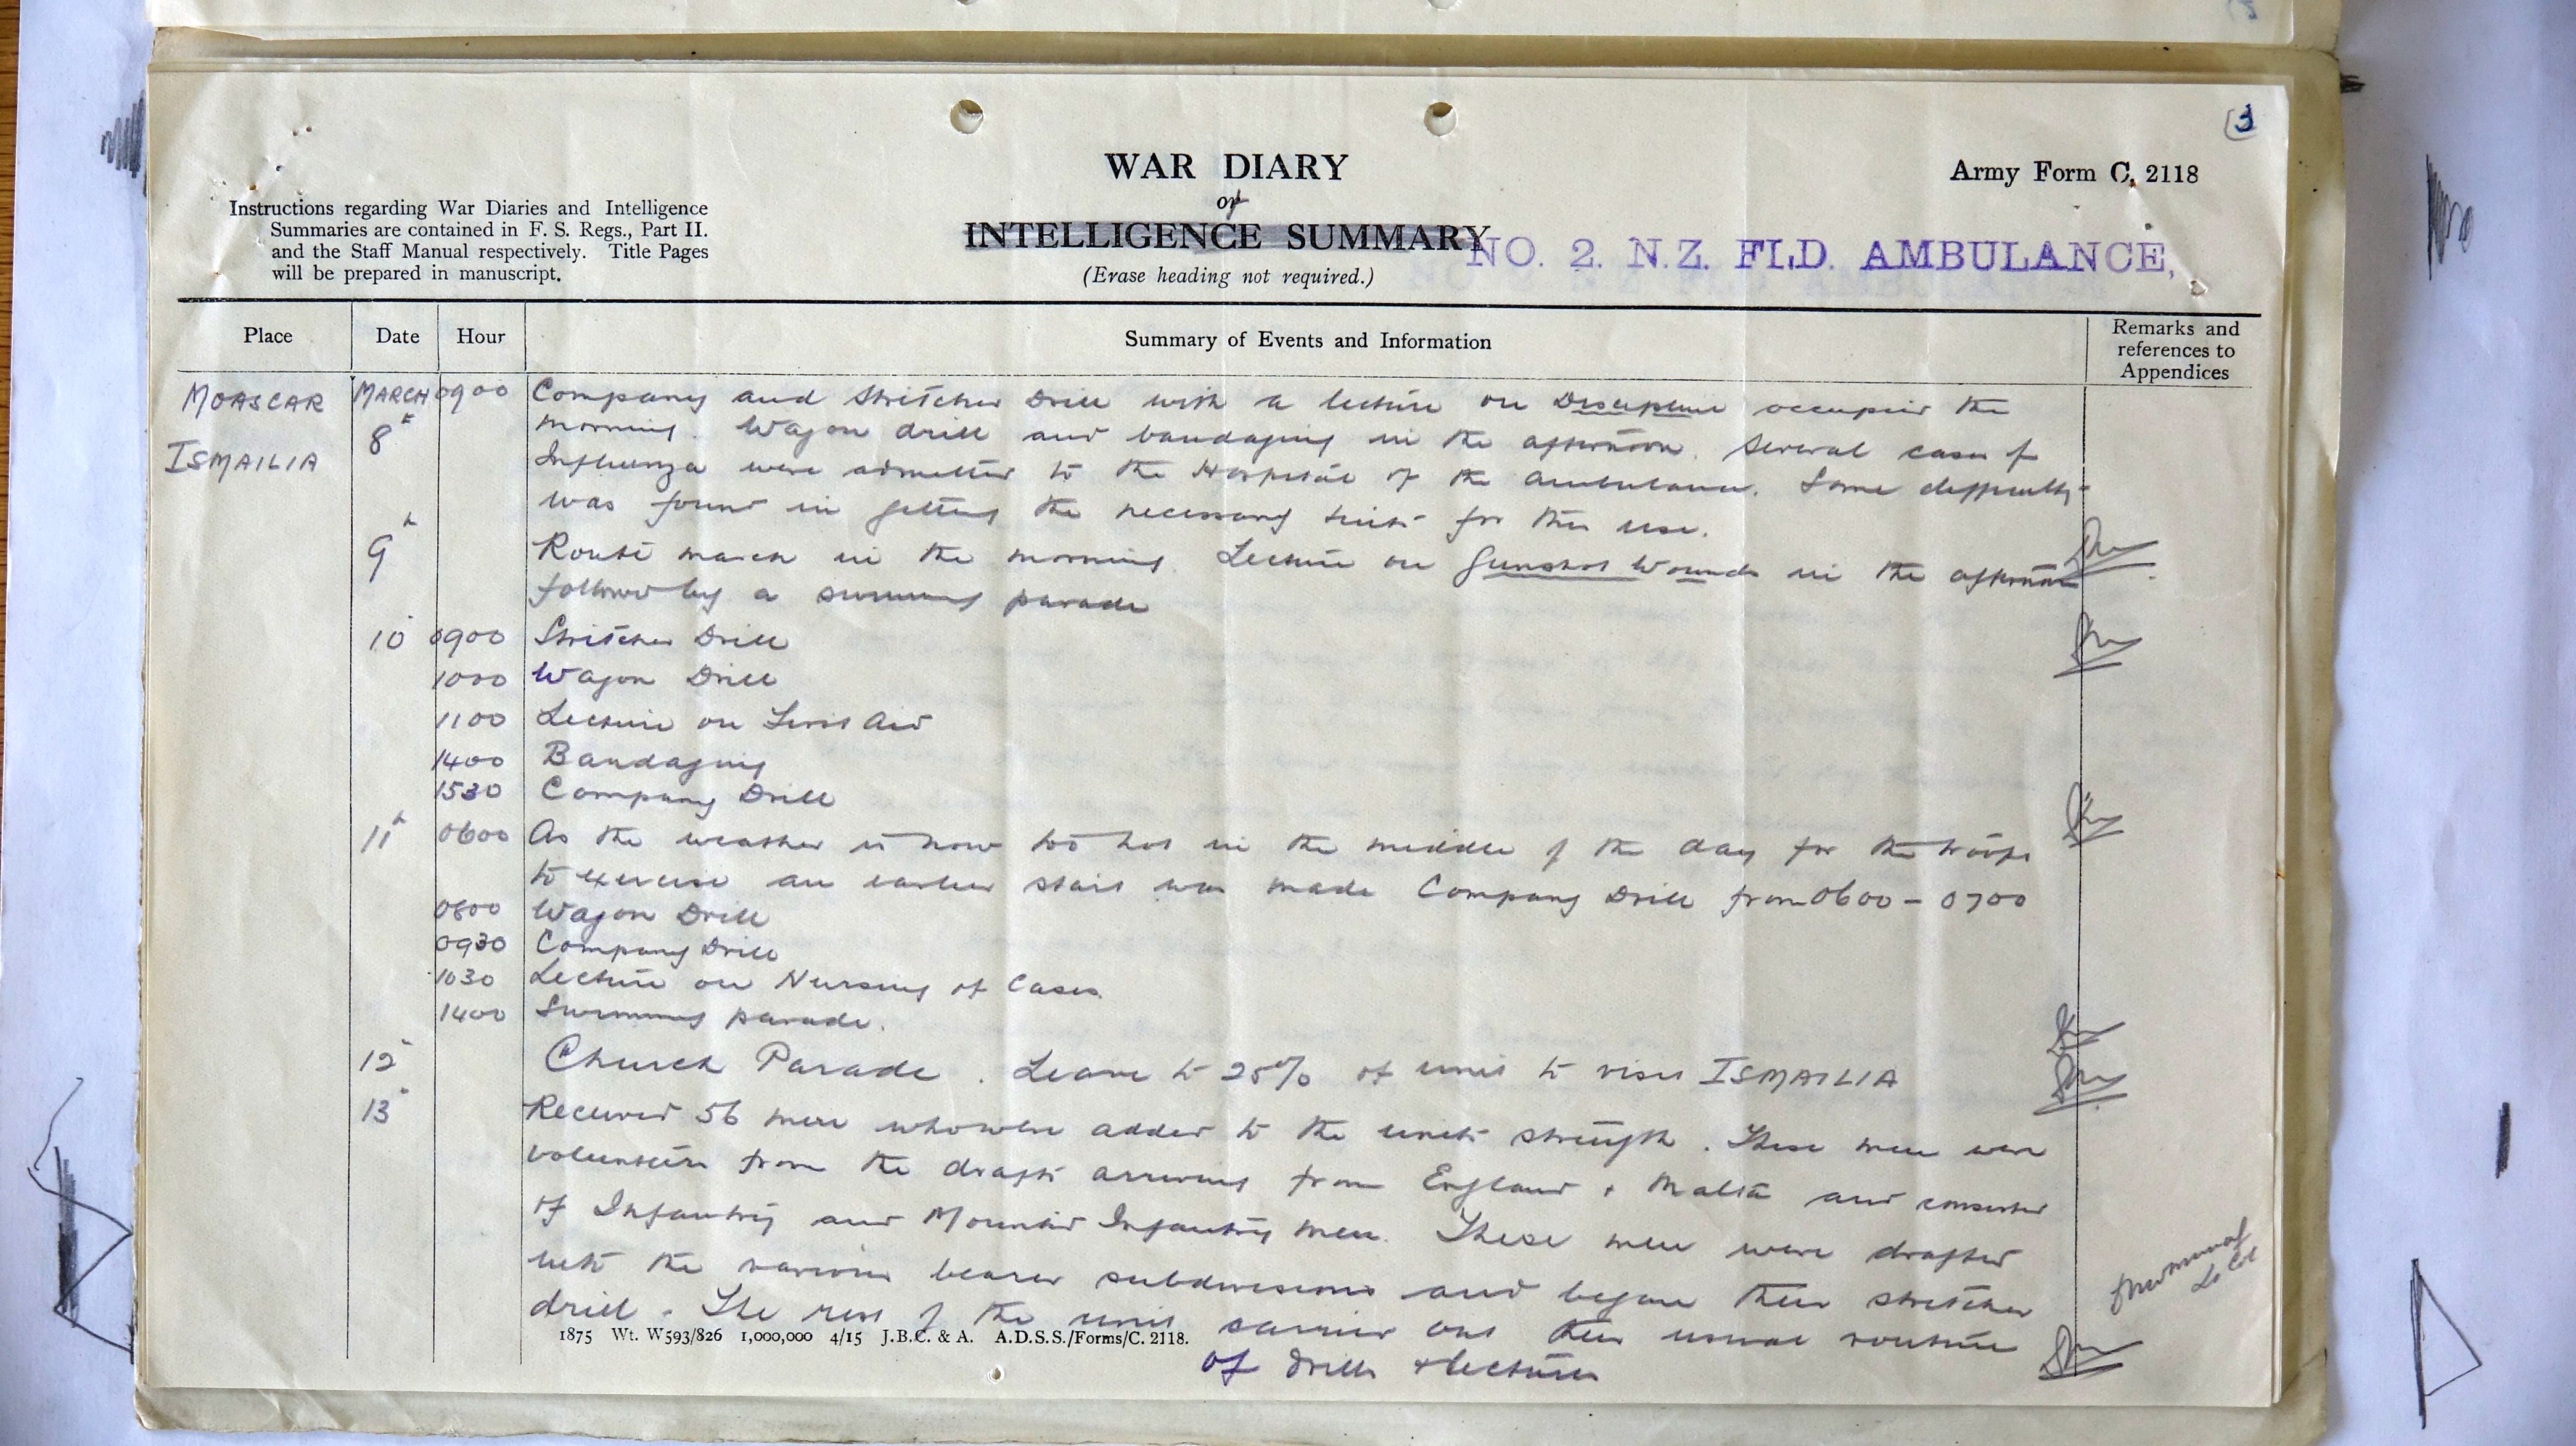 (3
WAR DIARY
or
INTELLIGENCE SUMMARY
(Erase heading not required.)
Army Form C. 2118
Instructions regarding War Diaries and Intelligence
Summaries are contained in F. S. Regs., Part II.
and the Staff Manual respectively. Title Pages
will be prepared in manuscript.
NO. 2. N.Z. FLD. AMBULANCE,
Place Date Hour Summary of Events and Information Remarks and references to Appendices
MOASCAR MARCH 0900 Company and Stretcher Drill with a lecture on Discipline occupied the
8th morning. Wagon drill and bandaging in the afternoon. Several cases of
ISMAILIA Influenza were admitted to the Hospital of the Ambulance. Some difficulty
was found in getting the necessary tents for this use.
9th Route march in the morning. Lecture on Gunshot Wounds in the afternoon
followed by a swimming parade
10 0900 Stretcher Drill
1000 Wagon Drill
1100 Lecture on First Aid
1400 Bandaging
1530 Company Drill
11th 0600 As the weather is now too hot in the middle of the day for the troops
to exercise an earlier start was made Company Drill from 0600 - 0700
0800 Wagon Drill
0930 Company Drill
1030 Lecture on Nursing of Cases.
1400 Swimming parade.
12 Church Parade. Leave to 25% of unit to visit ISMAILIA
13 Received 56 men who were added to the units strength. These men were
volunteers from the drafts arriving from England + Malta and consisted
of Infantry and Mounted Infantry men. These men were drafted
into the various bearer subdivisions and began their stretcher
drill. The rest of the unit carried out their usual routine
of drills + lectures
Lt Col
1875 Wt. W593/826 1,000,000 4/15 J.B.C. & A. A.D.S.S./Forms/C. 2118.